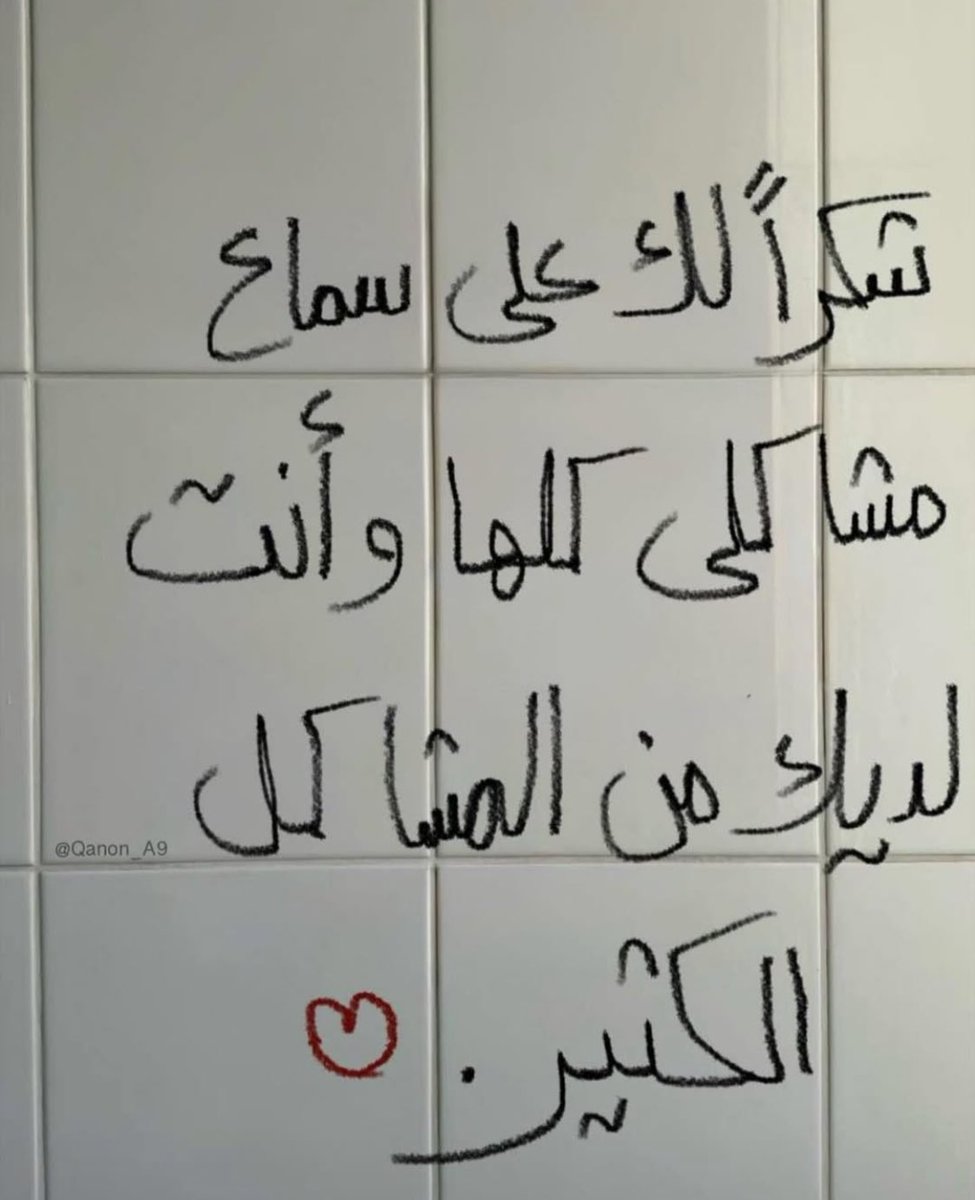 شكراً لك على سماع
مشاكلى كلها وأنت
لديك من المشاكل
@Qanon_A9
الكثير.